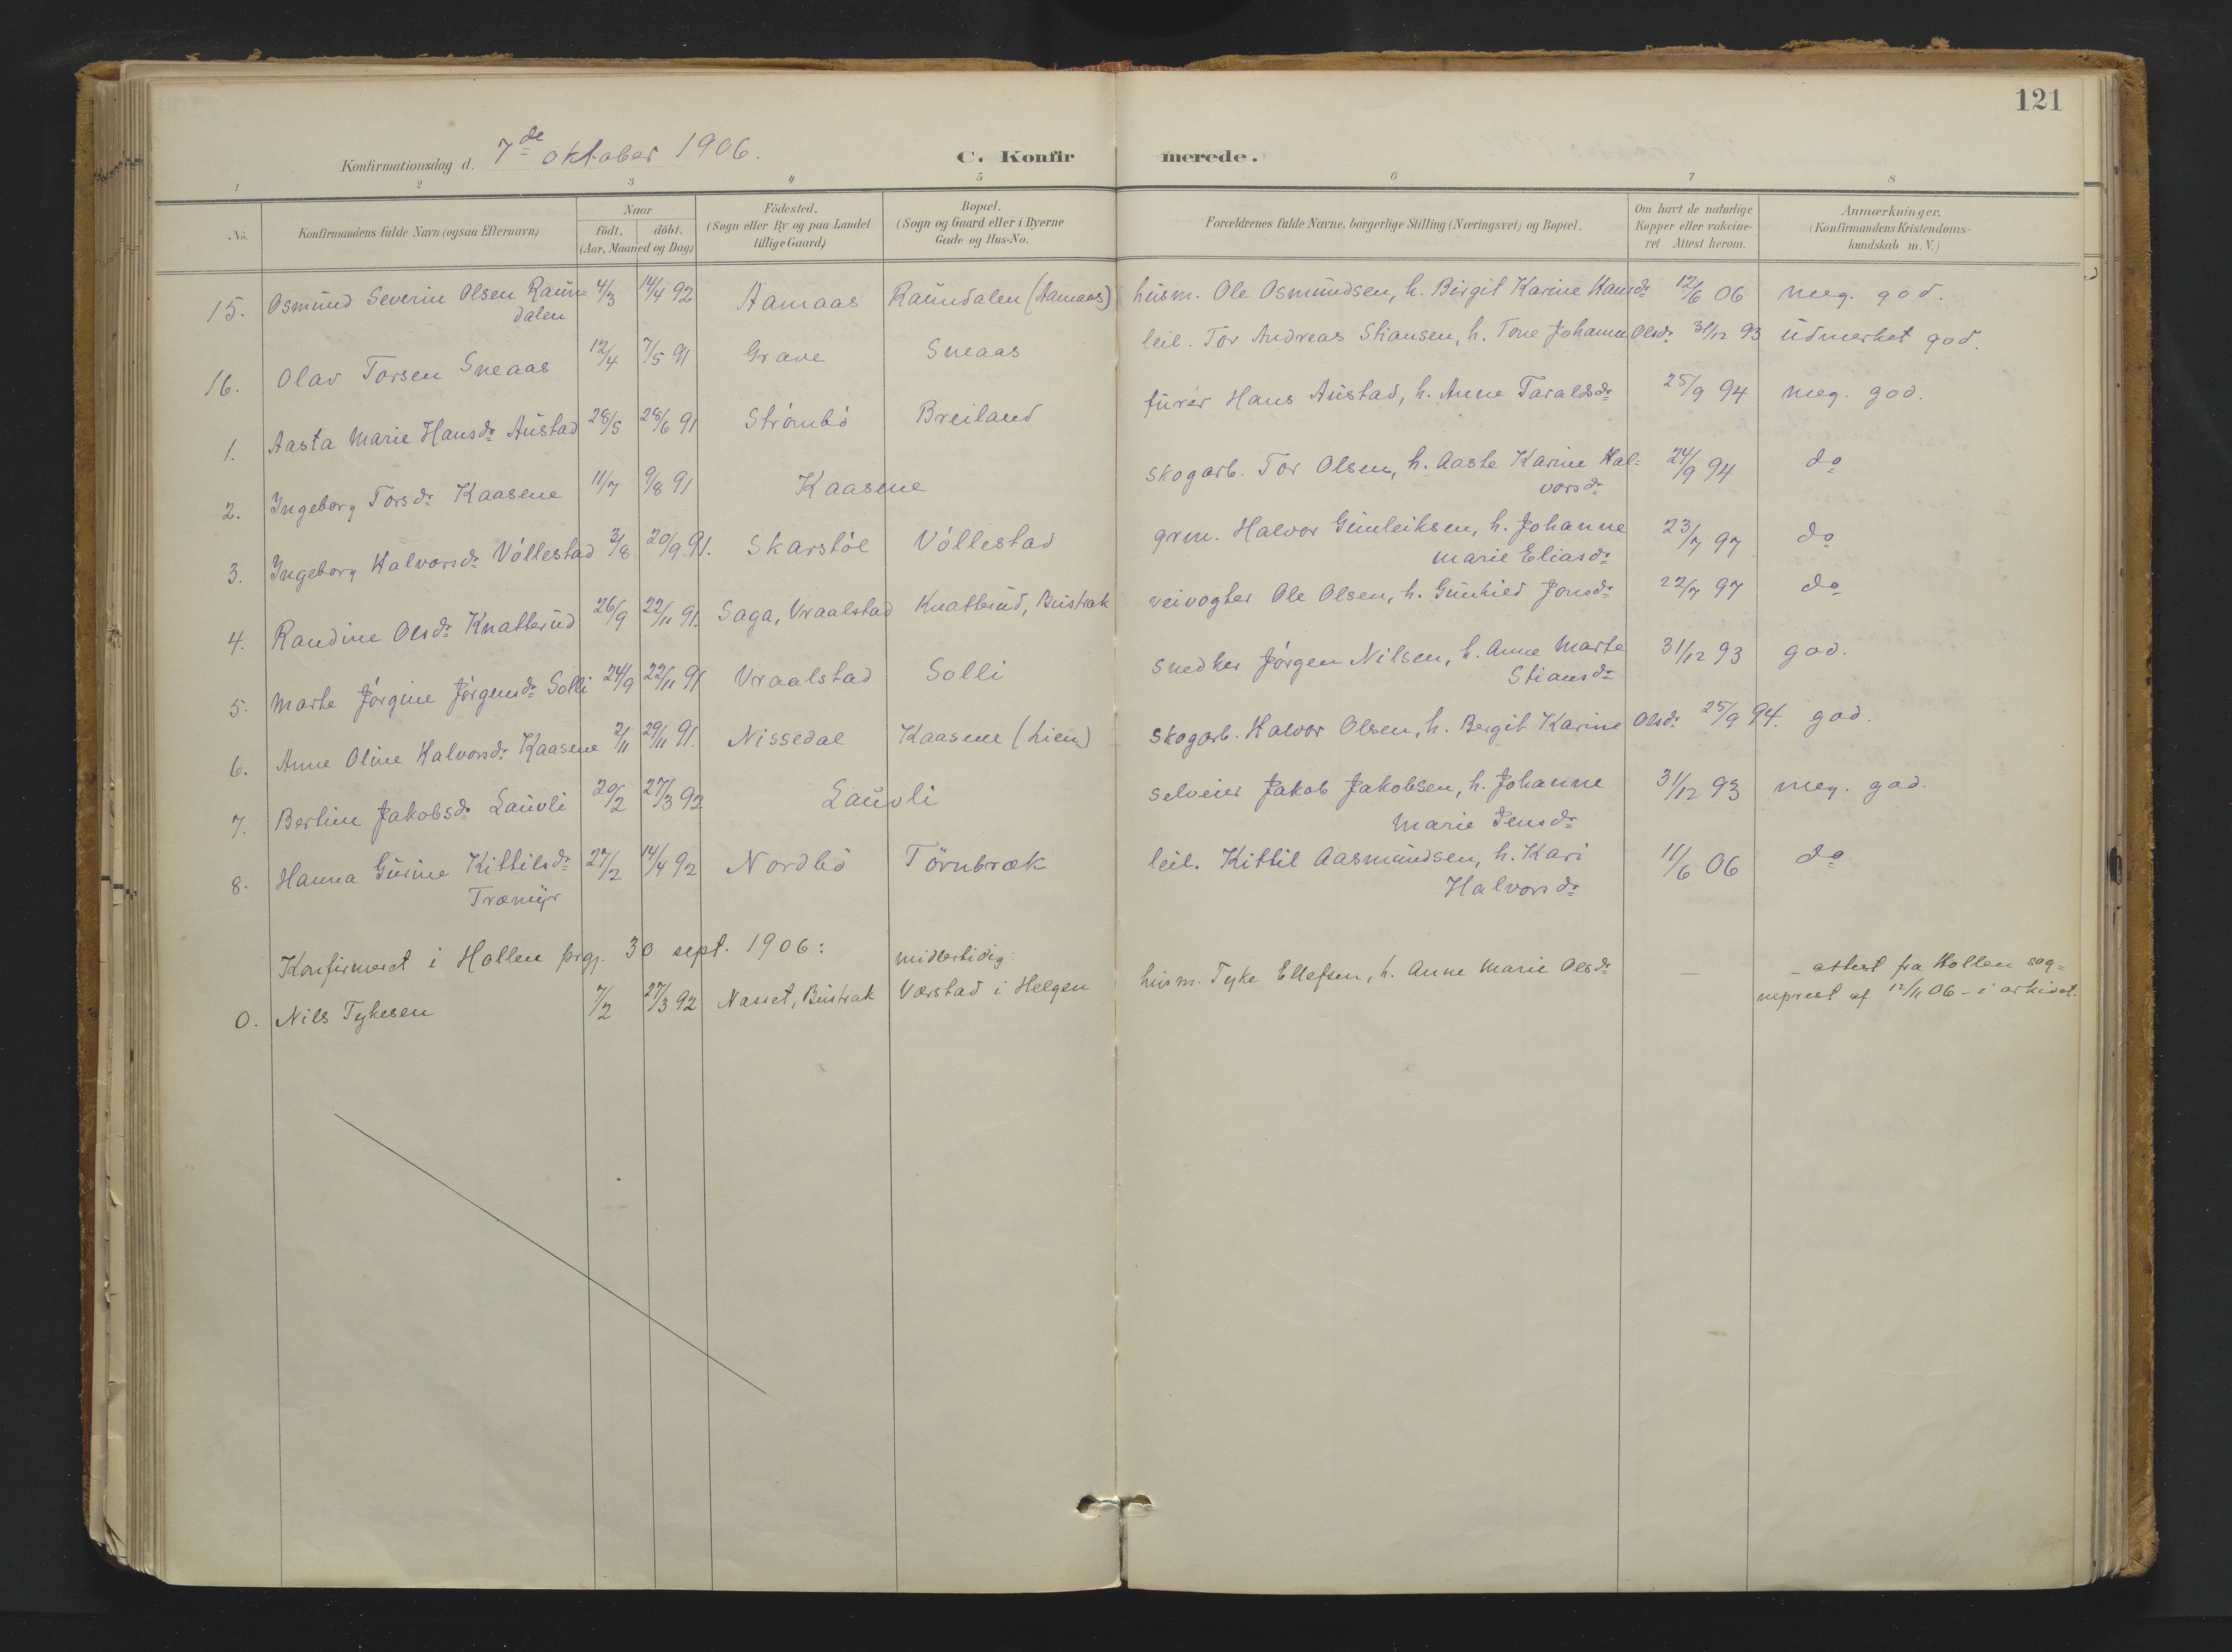 121
Konfirmationsdag d. 7de oktober 1906. C. Konfirmerede.
1 2 3 4 5 6 7 8
No. Konfirmandens fulde Navn (ogsaa Efternavn) Naar födt. döbt. (Aar, Maaned og Dag) Födested. (Sogn eller By og paa Landet tillige Gaard) Bopæl. (Sogn og Gaard eller i Byerne Gade og Hus-No. Forældrenes fulde Navne, borgerlige Stilling (Næringsvei) og Bopæl. Om havt de naturlige Kopper eller vakcineret. Attest herom. Anmærkninger, (Konfirmandens Kristendomskundskab m. V.)
15. Osmund Severin Olsen Raun= 4/3 14/4 92 Aamaas Raundalen (Aamaas) husm. Ole Osmundsen, h. Birgit Karine Hansdr 12/6 06 meg. god.
dalen
16. Olav Torsen Sneaas 12/4 7/5 91 Grave Sneaas leil. Tor Andreas Stiansen, h. Tone Johanne Olsdr 31/12 93 udmerket god.
1. Aasta Marie Hansdr Austad 28/5 28/6 91 Strömbö Breiland furér Hans Austad, h. Anne Taraldsdr 25/9 94 meg. god.
2. Ingeborg Torsdr Kaasene 11/7 9/8 91 Kaasene skogarb. Tor Olsen, h. Aaste Karine Hal= 24/9 94 do
vorsdr
3. Ingeborg Halvorsdr Völlestad 3/8 20/9 91. Skarstöl Völlestad grm. Halvor Gunleiksen, h. Johanne 23/7 97 do
Marie Eliasdr
4. Randine Olsdr Knatterud 26/9 22/11 91. Saga, Vraalstad Knatterud, Bustrak veivogter Ole Olsen, h. Gunhild Jonsdr 22/7 97 do
5. Marte Jörgine Jörgensdr Solli 24/9 22/11 91 Vraalstad Solli snedker Jörgen Nilsen, h. Anne Marte 31/12 93 god.
Stiansdr
6. Anne Oline Halvorsdr Kaasene 2/11 29/11 91. Nissedal Kaasene (Lien) skogarb. Halvor Olsen, h. Bergit Karine Olsdr 25/9 94. god.
7. Bertine Jakobsdr Lauvli 20/2 27/3 92 Lauvli selveier Jakob Jakobsen, h. Johanne 31/12 93 meg. god.
Marie Jensdr
8. Hanna Gurine Kittilsdr 27/2 14/4 92 Nordbö Törnbræk leil. Kittil Aasmundsen, h. Kari 11/6 06 do
Træmyr Halvorsdr
Konfirmeret i Hollen prgj. 30 sept. 1906: midlertidig:
0. Nils Tykesen 7/2 27/3 92 Nasset, Bustrak Værstad i Helgen husm. Tyke Ellefsen, h. Anne Marie Olsdr — – attest fra Hollen sog=
neprest af 12/11 06 – i arkivet.